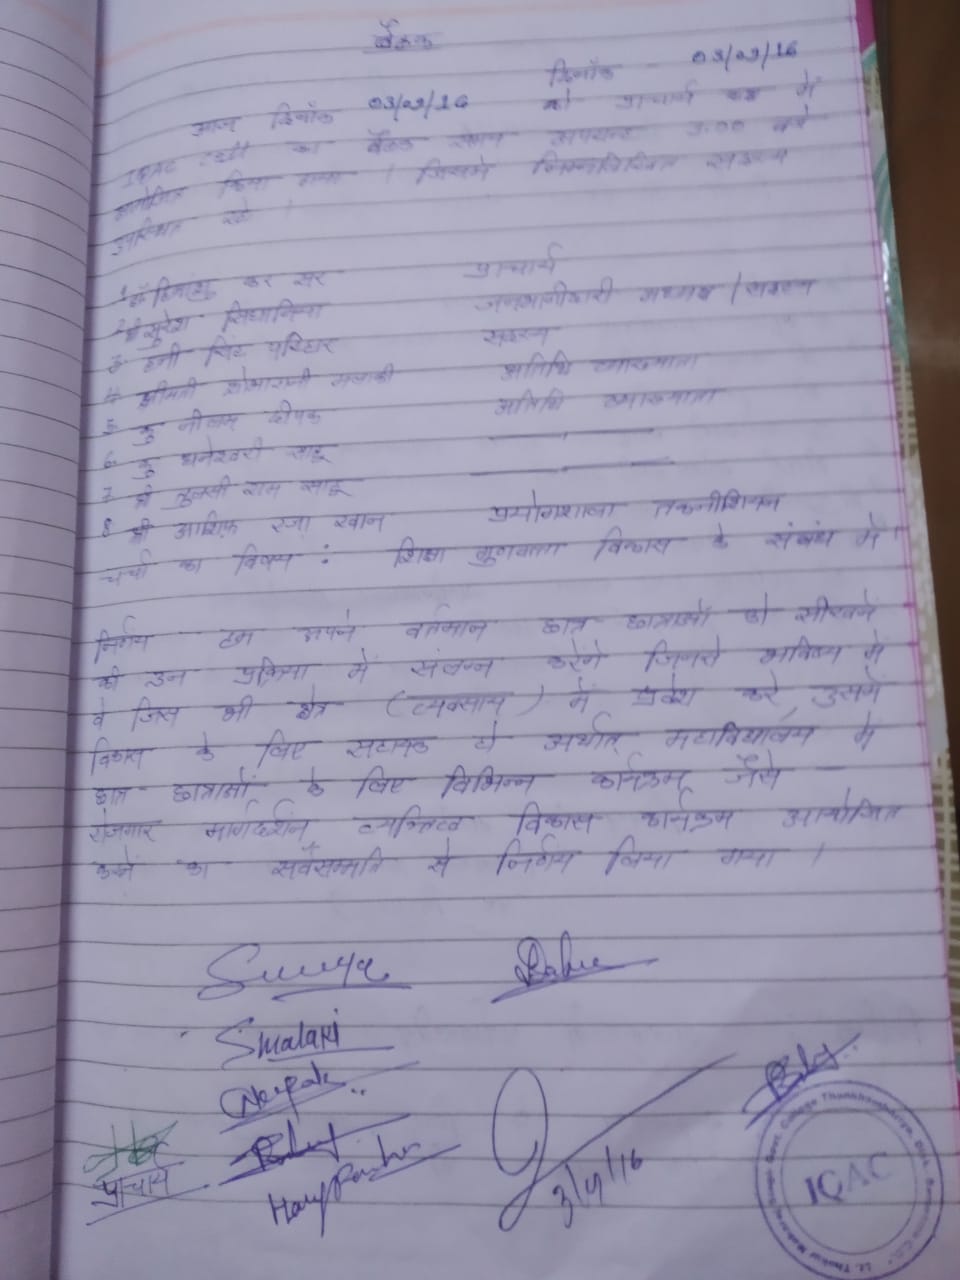 बैठक
दिनांक - 03/09/16
आज दिनांक 03/09/16 को प्राचार्य कक्ष में
IQAC का बैठक समय अपरान्ह 3:00 बजे
आयोजित किया गया। जिसमें निम्नलिखित सदस्य
उपस्थित रहे।
1. डॉ. हिमांशु कर सर प्राचार्य
2. श्री सुरेश सिंघानिया जनभागीदारी अध्यक्ष / सदस्य
3. हनी सिंह परिहार सदस्य
4. श्रीमती शोभारानी मलाकी अतिथि व्याख्याता
5. कु नीलम दीपक अतिथि व्याख्याता
6. कु धनेश्वरी साहू
7. श्री तुलसी राम साहू
8. श्री आशिफ रजा खान प्रयोगशाला तकनीशियन
चर्चा का विषय : शिक्षा गुणवत्ता विकास के संबंध में।
निर्णय हम अपने वर्तमान छात्र छात्राओं को सीखने
की उन प्रक्रिया में संलग्न करेंगे जिनसे भविष्य में
वे जिस भी क्षेत्र (व्यवसाय) में प्रवेश करे उसमें
विकास के लिए सहायक हो अर्थात् महाविद्यालय में
छात्र छात्राओं के लिए विभिन्न कार्यक्रम जैसे -
रोजगार मार्गदर्शन, व्यक्तित्व विकास कार्यक्रम आयोजित
करने का सर्वसम्मति से निर्णय लिया गया।
Smalaki
प्राचार्य
3/9/16
IQAC